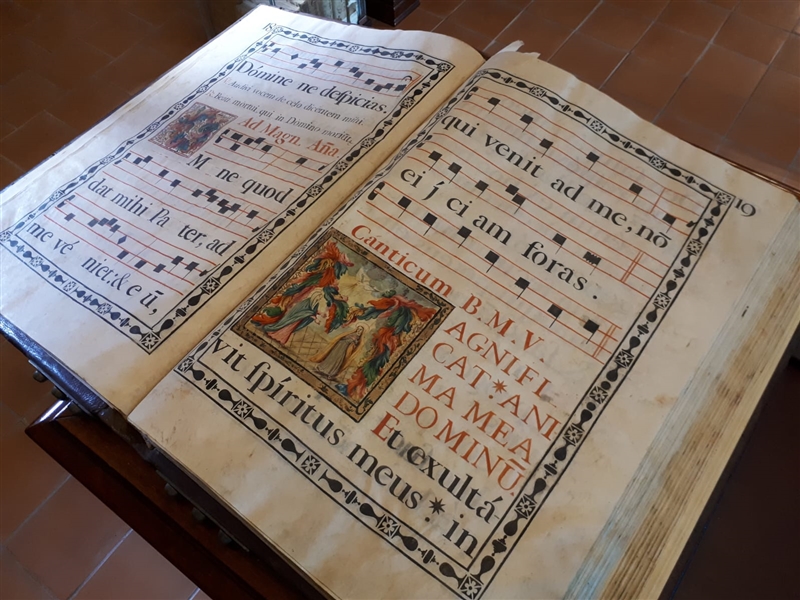 Dómine ne deſpicias.
Audivi vocem de cœlo dicentem mihi.
Beati mortui, qui in Domino
Ad Magn. Aña
M ne quod
dat mihi Pa ter, ad
me vé niet: & e ū,
19
qui venit ad me, nō
ei j ci am foras :
Canticum B. M. V.
AGNIFI
CAT * ANI
MA MEA
DOMINŪ.
Et exultá
vit ſpíritus meus * in